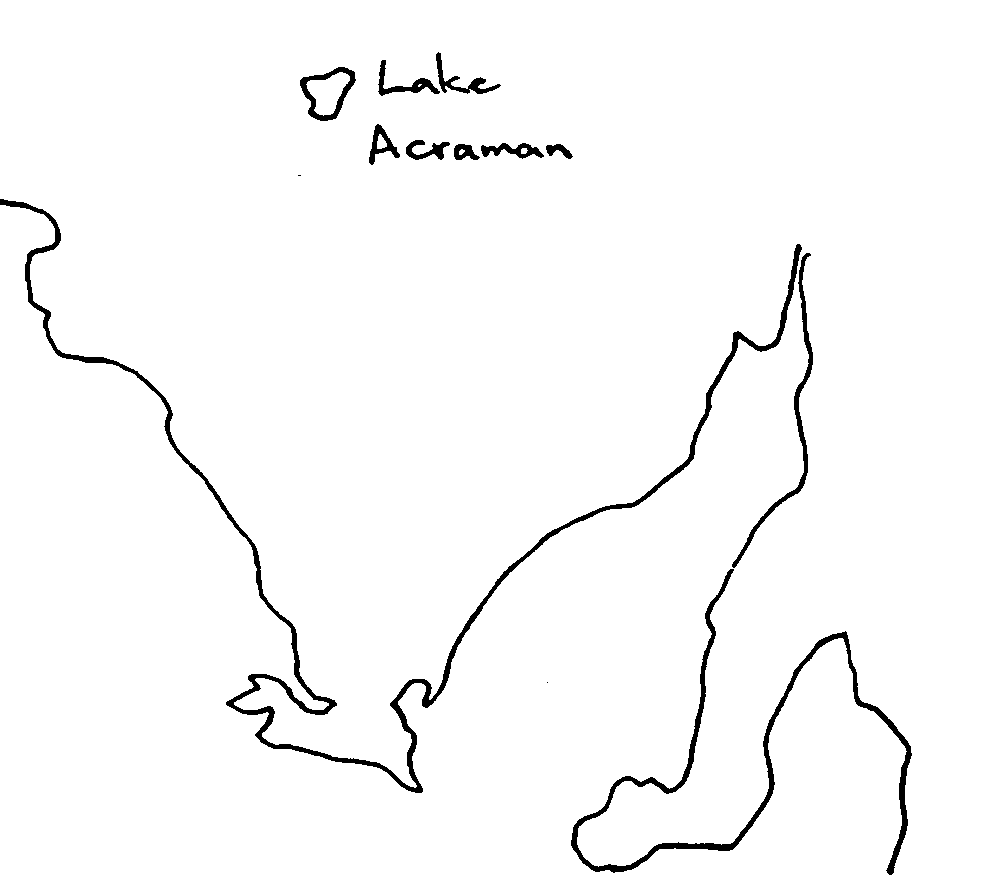 Lake
Acraman